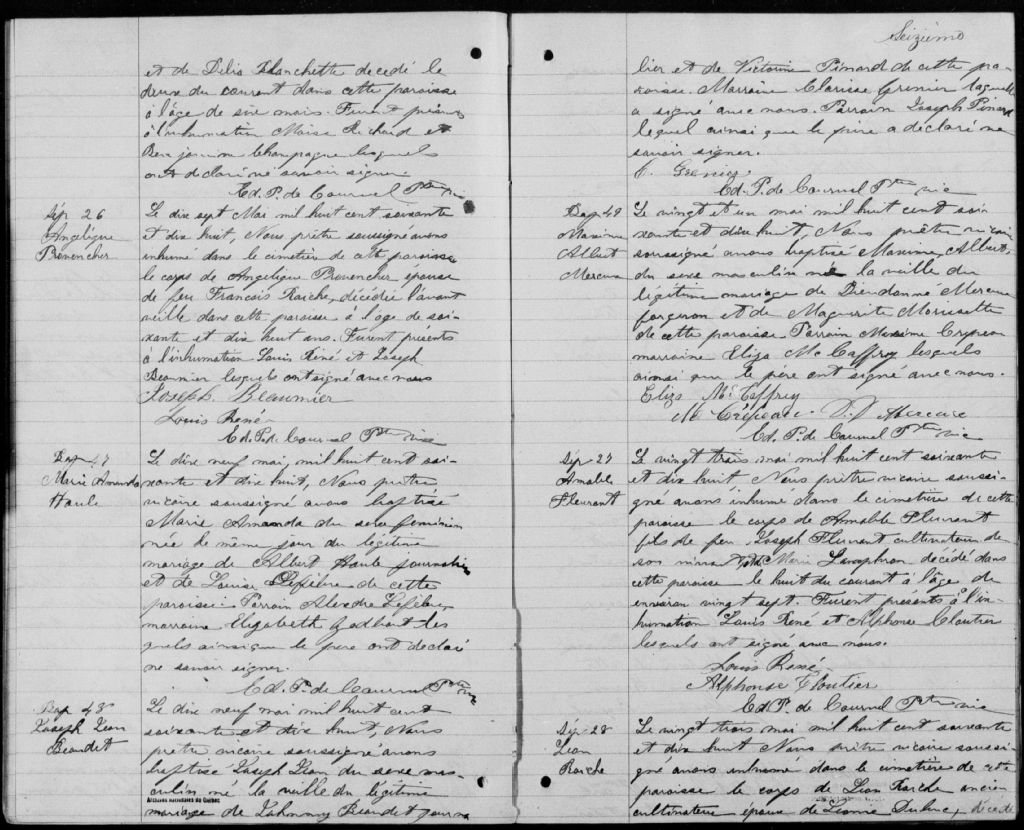 et de Délia Blanchette decedé le
deux du courant dans cette paroisse
à l'âge de six mois. Furent présents
à l'inhumation Moise Richard et
Benjamin Champagne lesquels
ont declaré ne savoir signer
Ed. P. de Courval Ptre vic
Sép 26
Angélique
Provencher
Le dix sept Mai mil huit cent soixante
et dix huit, Nous prêtre soussigné avons
inhumé dans le cimetière de cette paroisse
le corps de Angélique Provencher épouse
de feu Francois Raiche, décédée l'avant
veille dans cette paroisse à l'age de soi-
xante et dix huit ans. Furent présents
à l'inhumation Louis René et Joseph
Beaumier lesquels ont signé avec nous
Joseph Beaumier
Louis René
Ed. P. de Courval Ptre vic
Bap 47
Marie Amanda
Haule
Le dix neuf mai, mil huit cent soi-
xante et dix huit, Nous prêtre
vicaire soussigné avons baptisé
Marie Amanda du sexe féminin
née le même jour du légitime
mariage de Albert Haule journalier
et de Louise Lefèbre de cette
paroisse. Parrain Alexdre Lefebvre
marraine Elizabeth les
quels ainsi que le pere ont declaré
ne savoir signer.
Ed. P. de Courval Ptre vic
Bap 48
Joseph Léon
Beaudet
Le dix neuf mai mil huit cent
soixante et dix huit, Nous
prêtre vicaire soussigné avons
baptisé Joseph Léon du sexe mas-
culin né la veille du légitime
mariage de Beaudet journa
Archives nationales du Québec
Seizième
lier et de Victorine Pinard de cette pa-
roisse. Marraine Clarisse Grenier laquelle
a signé avec nous. Parrain Joseph Pinard
lequel ainsi que le père a déclaré ne
savoir signer.
C. Grenier
Ed. P. de Courval Ptre vic
Bap 49
Maxime
Albert
Mercure
Le vingt et un mai mil huit cent soi-
xante et dix huit, Nous prêtre vicaire
soussigné avons baptisé Maxime, Albert,
du sexe masculin né la veille du
légitime mariage de Dieudonné Mercure
forgeron et de Maguerite Morissette
de cette paroisse Parrain Maxime Crepeau
marraine Eliza McCaffrey lesquels
ainsi que le père ont signé avec nous.
Eliza McCaffrey
M Crépeau D. Mercure
Ed. P. de Courval Ptre vic
Sép 27
Amable
Fleurant
Le vingt trois mai mil huit cent soixante
et dix huit Nous prêtre vicaire soussi-
gné avons inhumé dans le cimetière de cette
paroisse le corps de Amable Fleurant
fils de feu Joseph Fleurant cultivateur de
son vivant et de Marie décédé dans
cette paroisse le huit du courant à l'âge de
environ vingt sept. Furent présents à l'in-
humation Louis René et Alphonse Cloutier
lesquels ont signé avec nous.
Louis René
Alphonse Cloutier
Ed. P. de Courval Ptre vic
Sép 28
Léon
Raiche
Le vingt trois mai mil huit cent soixante
et dix huit Nous prêtre vicaire soussi-
gné avons inhumé dans le cimetière de cette
paroisse le corps de Léon Raiche ancien
cultivateur époux de Léonie Dubuc, décédé